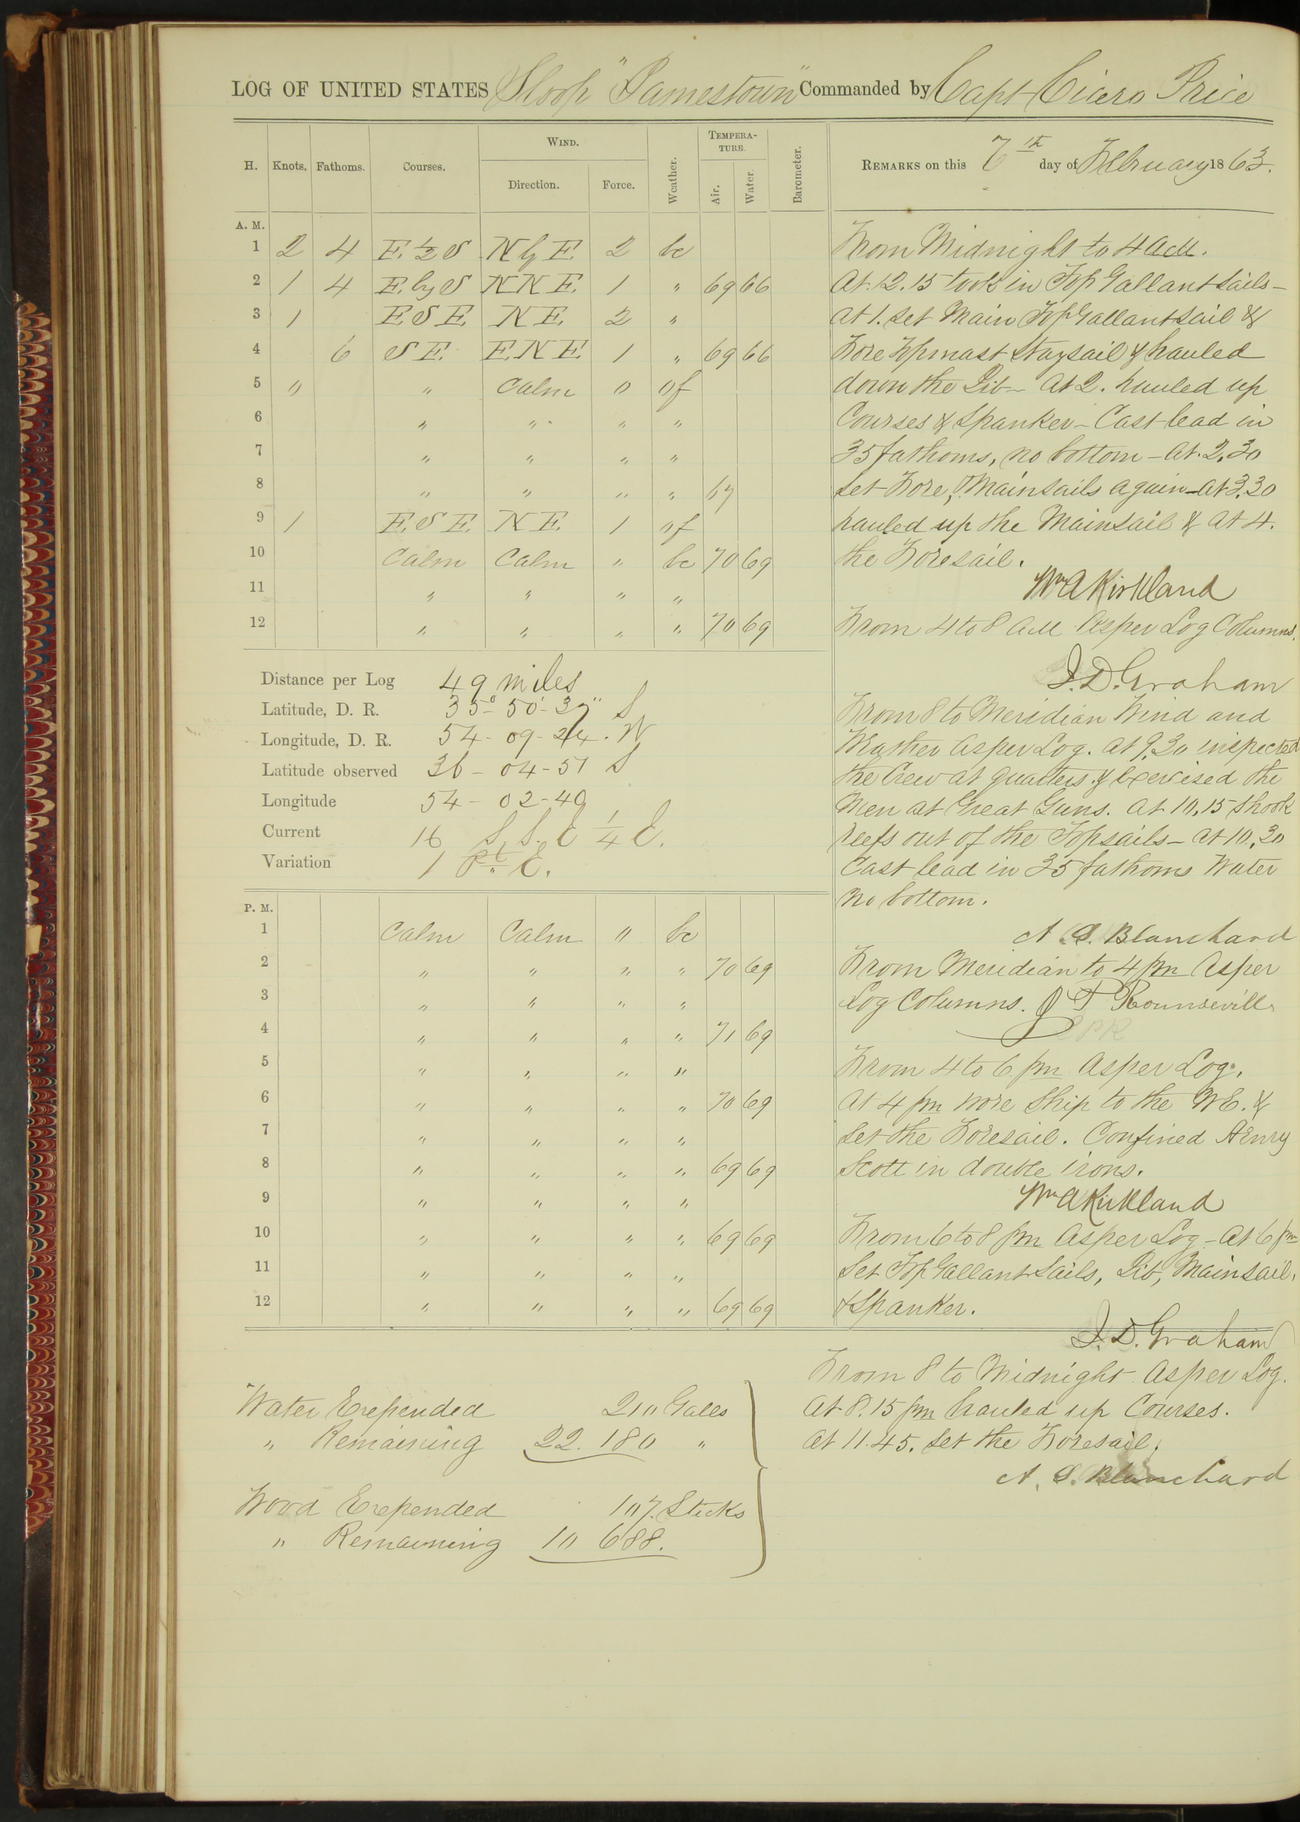 LOG OF UNITED STATES Sloop "Jamestown" Commanded by Capt Cicero Price
H. Knots. Fathoms. Courses. WIND. Direction. Force. Weather. TEMPERATURE. Air. Water. Barometer.
REMARKS on this 6th day of February 1863.
A. M.
1 2 4 E ½ S N by E 2 bc
2 1 4 E by S NNE 1 " 69 66
3 1 ESE NE 2 "
4 6 SE ENE 1 " 69 66
5 " " Calm 0 of
6 " " " "
7 " " " "
8 " " " " 67
9 1 ESE NE 1 of
10 Calm Calm " bc 70 69
11 " " " "
12 " " " " 70 69
Distance per Log 49 miles
Latitude, D. R. 35° 50' 37" S
Longitude, D. R. 54 - 09 - 24 . W
Latitude observed 36 - 04 - 51 S
Longitude 54 - 02 - 40
Current 16 S S. E ¼ E.
Variation 1 Pt E.
P. M.
1 Calm Calm " bc
2 " " " " 70 69
3 " " " "
4 " " " " 71 69
5 " " " "
6 " " " " 70 69
7 " " " "
8 " " " " 69 69
9 " " " "
10 " " " " 69 69
11 " " " "
12 " " " " 69 69
Water Expended 210 Galls
" Remaining 22. 180 "
Wood Expended 107. Sticks
" Remaining 10 688.
From Midnight to 4 AM.
At 12.15 took in Top Gallant sails -
At 1. set Main Top Gallant sail &
Fore Topmast Staysail & hauled
down the Jib - At 2. hauled up
Courses & Spanker - Cast lead in
35 fathoms, no bottom - At 2.30
set Fore, & Mainsails again - At 3.30
hauled up the Mainsail & at 4.
the Foresail.
Wm A Kirkland
From 4 to 8 AM As per Log Columns.
J. D. Graham
From 8 to Meridian Wind and
Weather As per Log. At 9.30 inspected
the Crew at quarters & Exercised the
Men at Great Guns. At 10.15 Shook
reefs out of the Topsails - At 10.30
Cast lead in 35 fathoms Water
no bottom.
A. S. Blanchard
From Meridian to 4 pm As per
Log Columns. J P Rounsevill
From 4 to 6 pm As per Log.
At 4 pm wore Ship to the NE. &
set the Foresail. Confined Henry
Scott in double irons.
Wm A Kirkland
From 6 to 8 pm As per Log - At 6 pm
set Top Gallant Sails, Jib, Mainsail,
& Spanker.
J. D. Graham
From 8 to Midnight As per Log.
At 8.15 pm hauled up Courses.
At 11.45. set the Foresail.
A. S. Blanchard